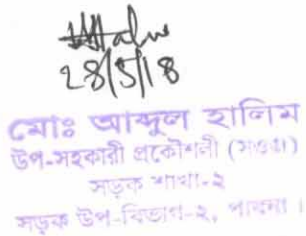 28/5/18
মোঃ আব্দুল হালিম
উপ-সহকারী প্রকৌশলী (সওজ)
সড়ক শাখা-২
সড়ক উপ-বিভাগ-২, পাবনা।